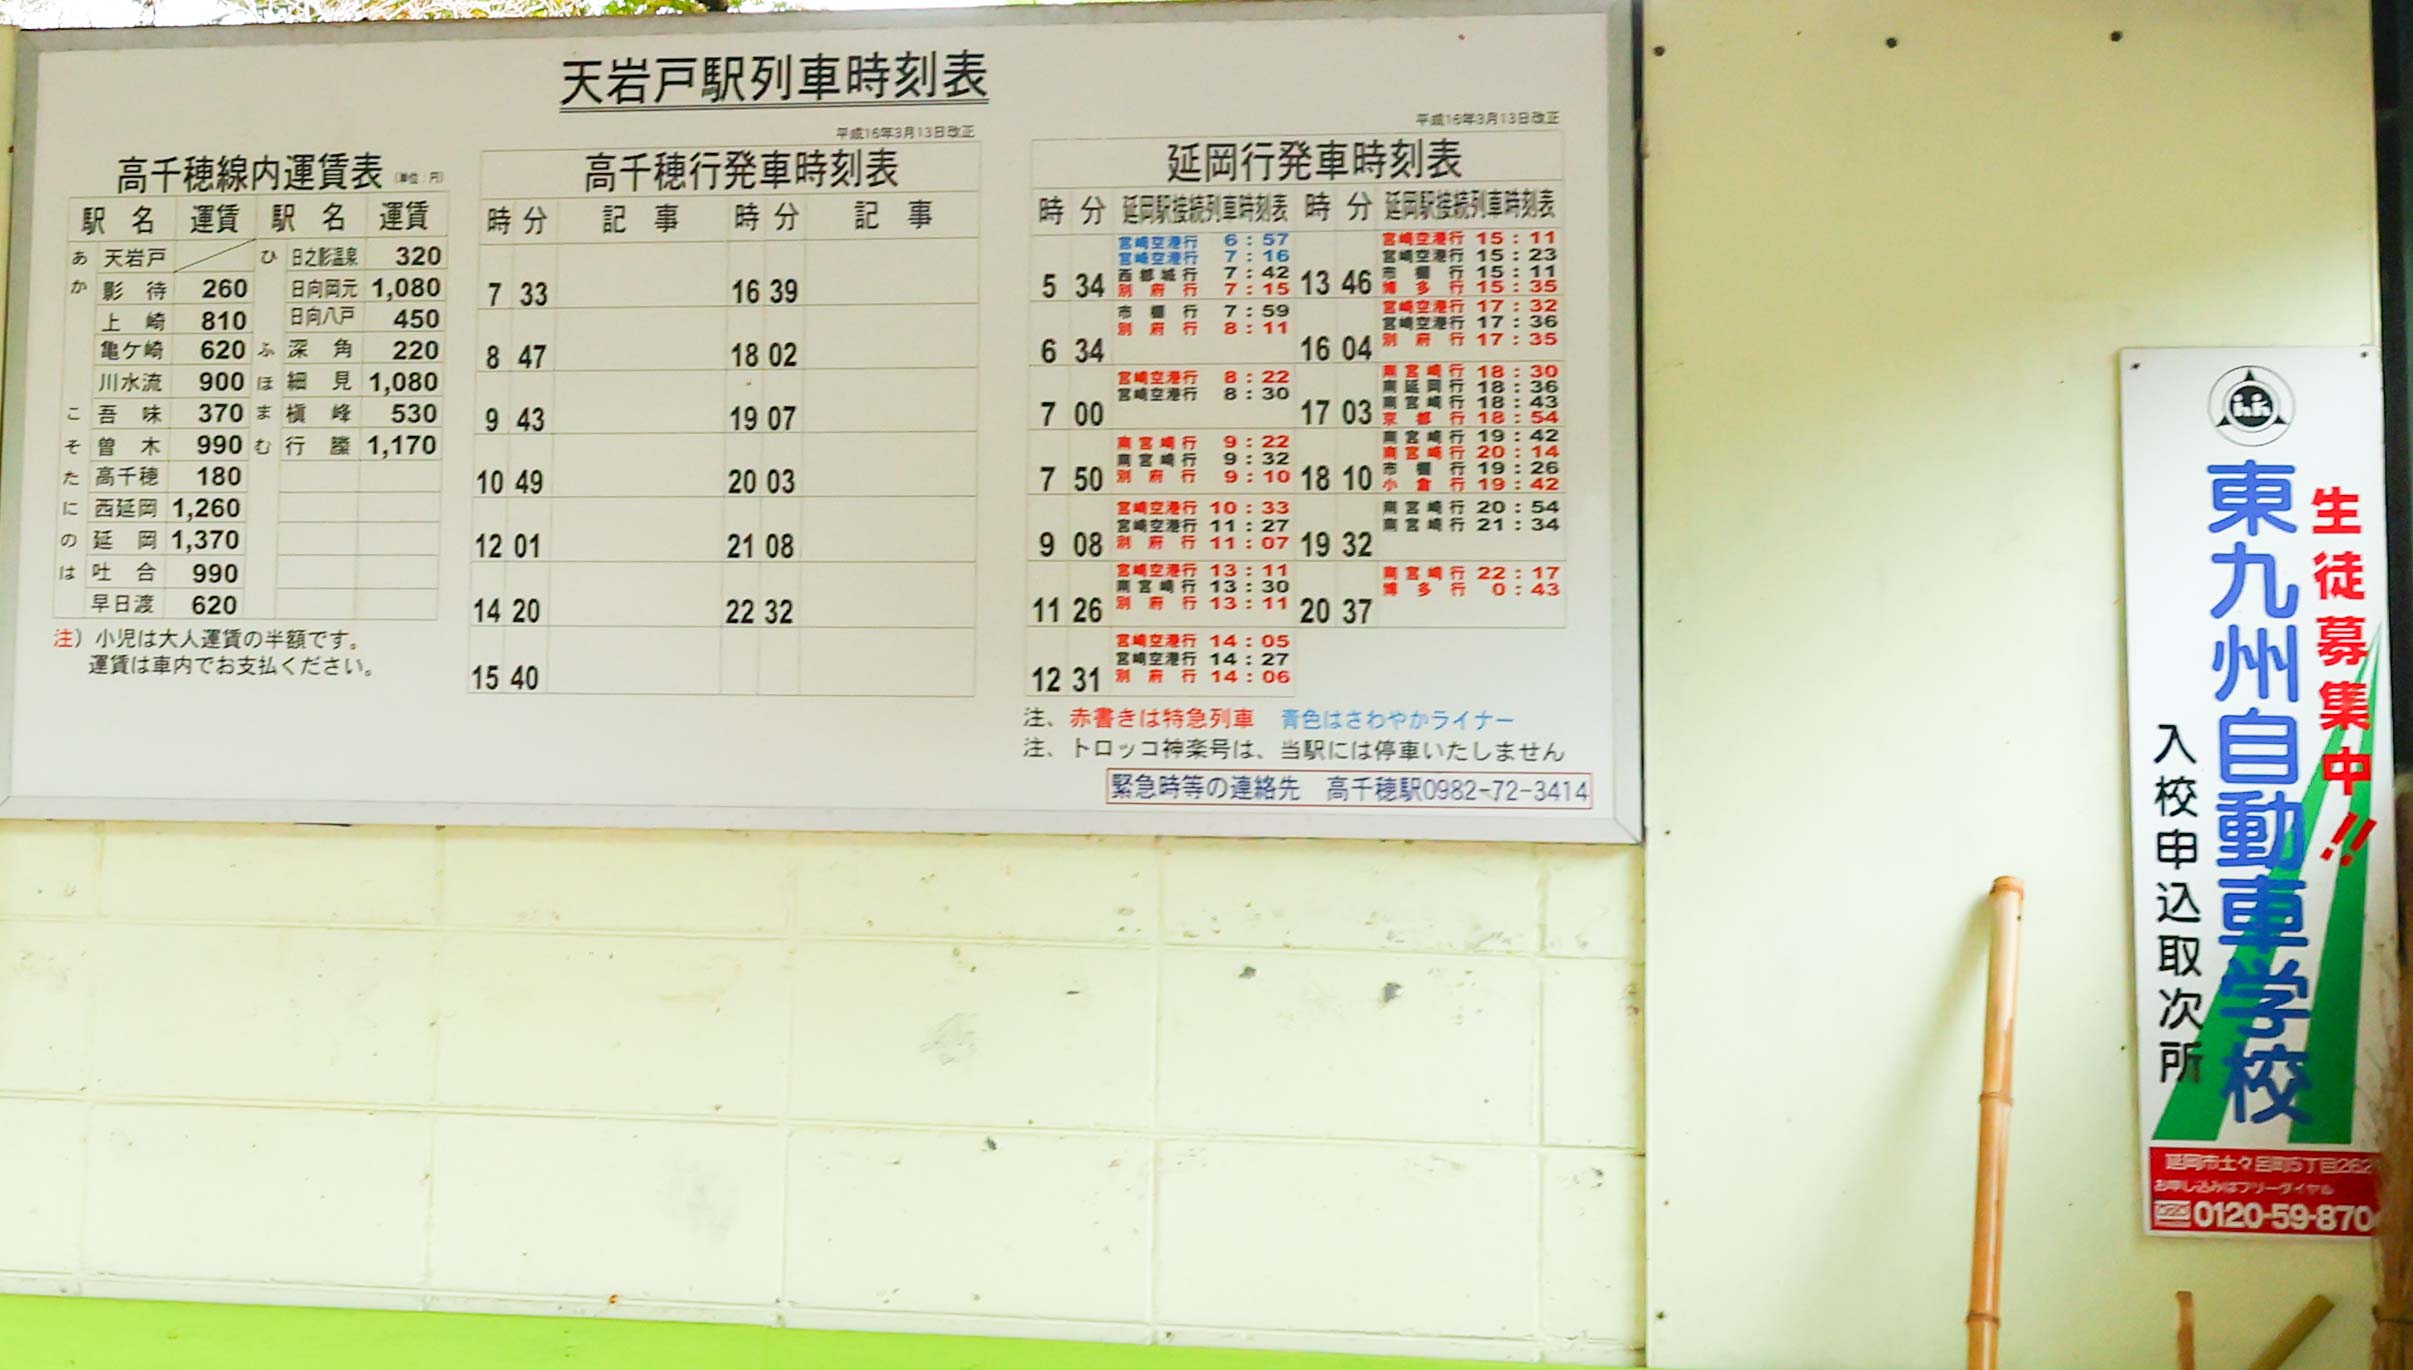 天岩戸駅列車時刻表
高千穂線内運賃表 (単位:円)
駅名 運賃 駅名 運賃
あ 天岩戸 ひ 日之影温泉 320
か 影待 260 日向岡元 1,080
上崎 810 日向八戸 450
亀ケ崎 620 ふ 深角 220
川水流 900 ほ 細見 1,080
こ 吾味 370 ま 槇峰 530
そ 曽木 990 む 行縢 1,170
た 高千穂 180
に 西延岡 1,260
の 延岡 1,370
は 吐合 990
早日渡 620
注)小児は大人運賃の半額です。
運賃は車内でお支払ください。
平成16年3月13日改正
高千穂行発車時刻表
時 分 記事 時 分 記事
7 33 16 39
8 47 18 02
9 43 19 07
10 49 20 03
12 01 21 08
14 20 22 32
15 40
平成16年3月13日改正
延岡行発車時刻表
時 分 延岡駅接続列車時刻表 時 分 延岡駅接続列車時刻表
5 34
宮崎空港行 6:57
宮崎空港行 7:16
西都城行 7:42
別府行 7:15
6 34
市棚行 7:59
別府行 8:11
7 00
宮崎空港行 8:22
宮崎空港行 8:30
7 50
南宮崎行 9:22
南宮崎行 9:32
別府行 9:10
9 08
宮崎空港行 10:33
宮崎空港行 11:27
別府行 11:07
11 26
宮崎空港行 13:11
南宮崎行 13:30
別府行 13:11
12 31
宮崎空港行 14:05
宮崎空港行 14:27
別府行 14:06
13 46
宮崎空港行 15:11
宮崎空港行 15:23
市棚行 15:11
博多行 15:35
16 04
宮崎空港行 17:32
宮崎空港行 17:36
別府行 17:35
17 03
南宮崎行 18:30
南延岡行 18:36
南宮崎行 18:43
京都行 18:54
18 10
南宮崎行 19:42
南宮崎行 20:14
市棚行 19:26
小倉行 19:42
19 32
南宮崎行 20:54
南宮崎行 21:34
20 37
南宮崎行 22:17
博多行 0:43
注、赤書きは特急列車 青色はさわやかライナー
注、トロッコ神楽号は、当駅には停車いたしません
緊急時等の連絡先 高千穂駅0982-72-3414
生徒募集中!!
東九州自動車学校
入校申込取次所
延岡市土々呂町5丁目262
お申し込みはフリーダイヤル
0120-59-870